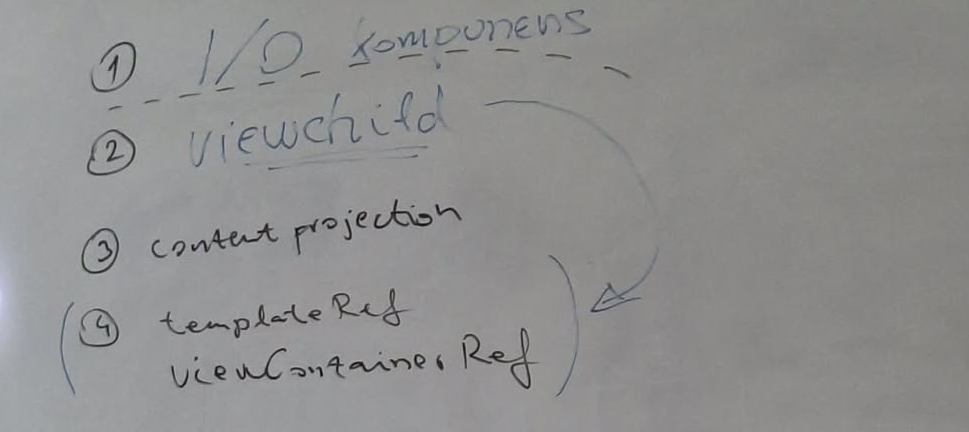 ① I/O komponens
② viewchild
③ content projection
④ templateRef
viewContainerRef